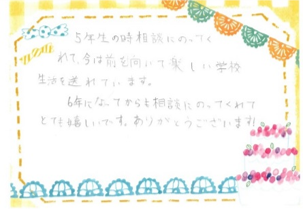 5年生の時相談にのってく
れて、今は前を向いて楽しい学校
生活を送れています。
6年になってからも相談にのってくれて
とても嬉しいです。ありがとうございます!